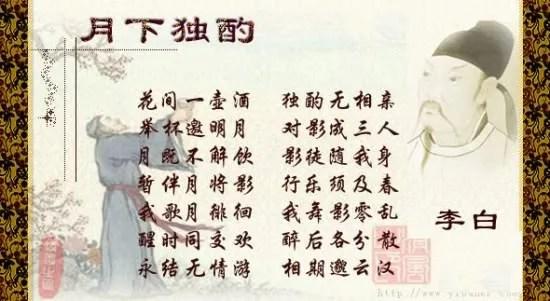 月下独酌
花间一壶酒 独酌无相亲
举杯邀明月 对影成三人
月既不解饮 影徒随我身
暂伴月将影 行乐须及春
我歌月徘徊 我舞影零乱
醒时同交欢 醉后各分散
永结无情游 相期邈云汉
李白